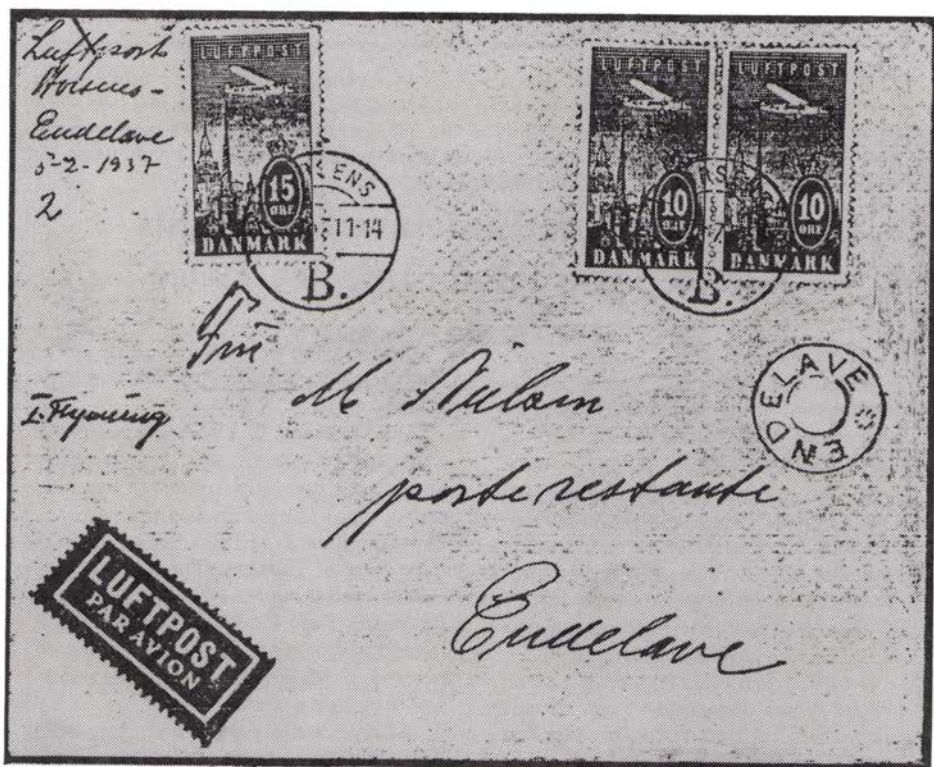 Luftpost
Horsens -
Endelave
5-2-1937
2
LUFTPOST
15
ØRE
DANMARK
LUFTPOST
10
ØRE
DANMARK
LUFTPOST
10
ØRE
DANMARK
ENS
11-14
B.
B.
M Nielsen
poste restante
Endelave
I. Flyvning
ENDELAVE
LUFTPOST
PAR AVION